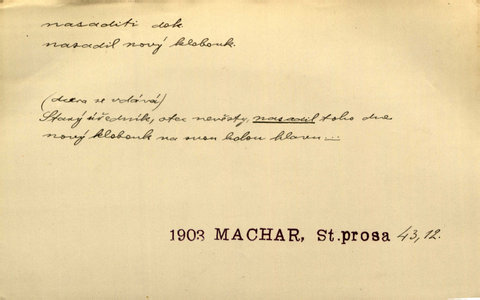 nasaditi dok.
nasadil nový klobouk.
(dcera se vdává)
Starý úředník, otec nevěsty, nasadil toho dne
nový klobouk na svou holou hlavu...
1903 MACHAR, St.prosa 43,12.